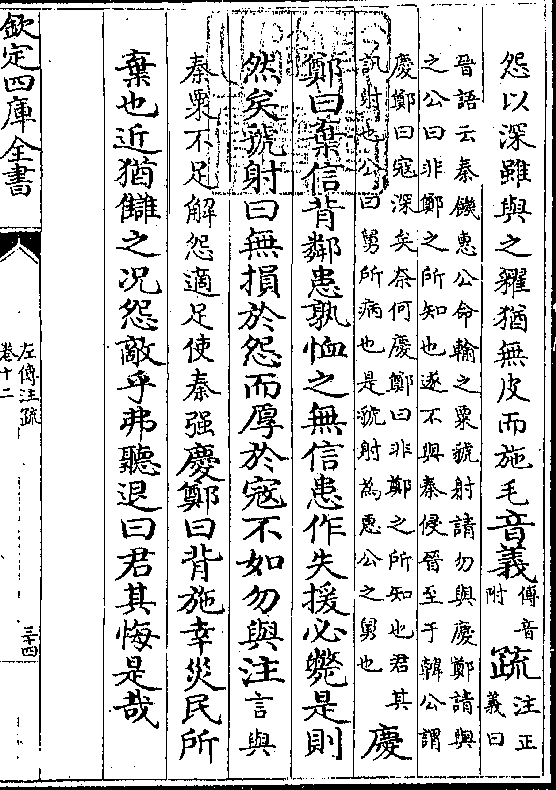 怨以深雖與之糴猶無皮而施毛音義傅音附疏注正義曰
晉語云秦饑惠公命輸之粟虢射請勿與慶鄭請與
之公曰非鄭之所知也遂不與秦侵晉至于韓公謂
慶鄭曰寇深矣奈何慶鄭曰非鄭之所知也君其
訊射也公曰舅所病也是虢射為惠公之舅也
慶
鄭曰棄信背鄰患孰恤之無信患作失援必斃是則
然矣虢射曰無損於怨而厚於寇不如勿與注言與
秦粟不足解怨適足使秦强慶鄭曰背施幸災民所
棄也近猶讎之况怨敵乎弗聽退曰君其悔是哉
欽定四庫全書
左傳注疏
卷十二
三十四